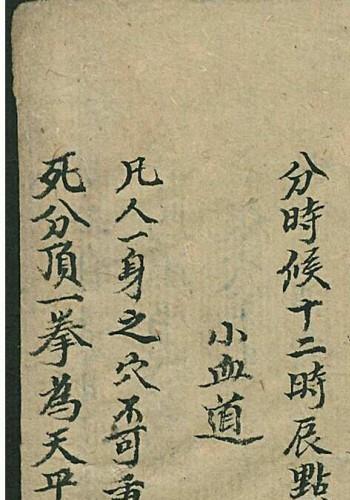 分時候十二時辰點
小血道
凡人一身之穴不可重
死分頂一拳為天平